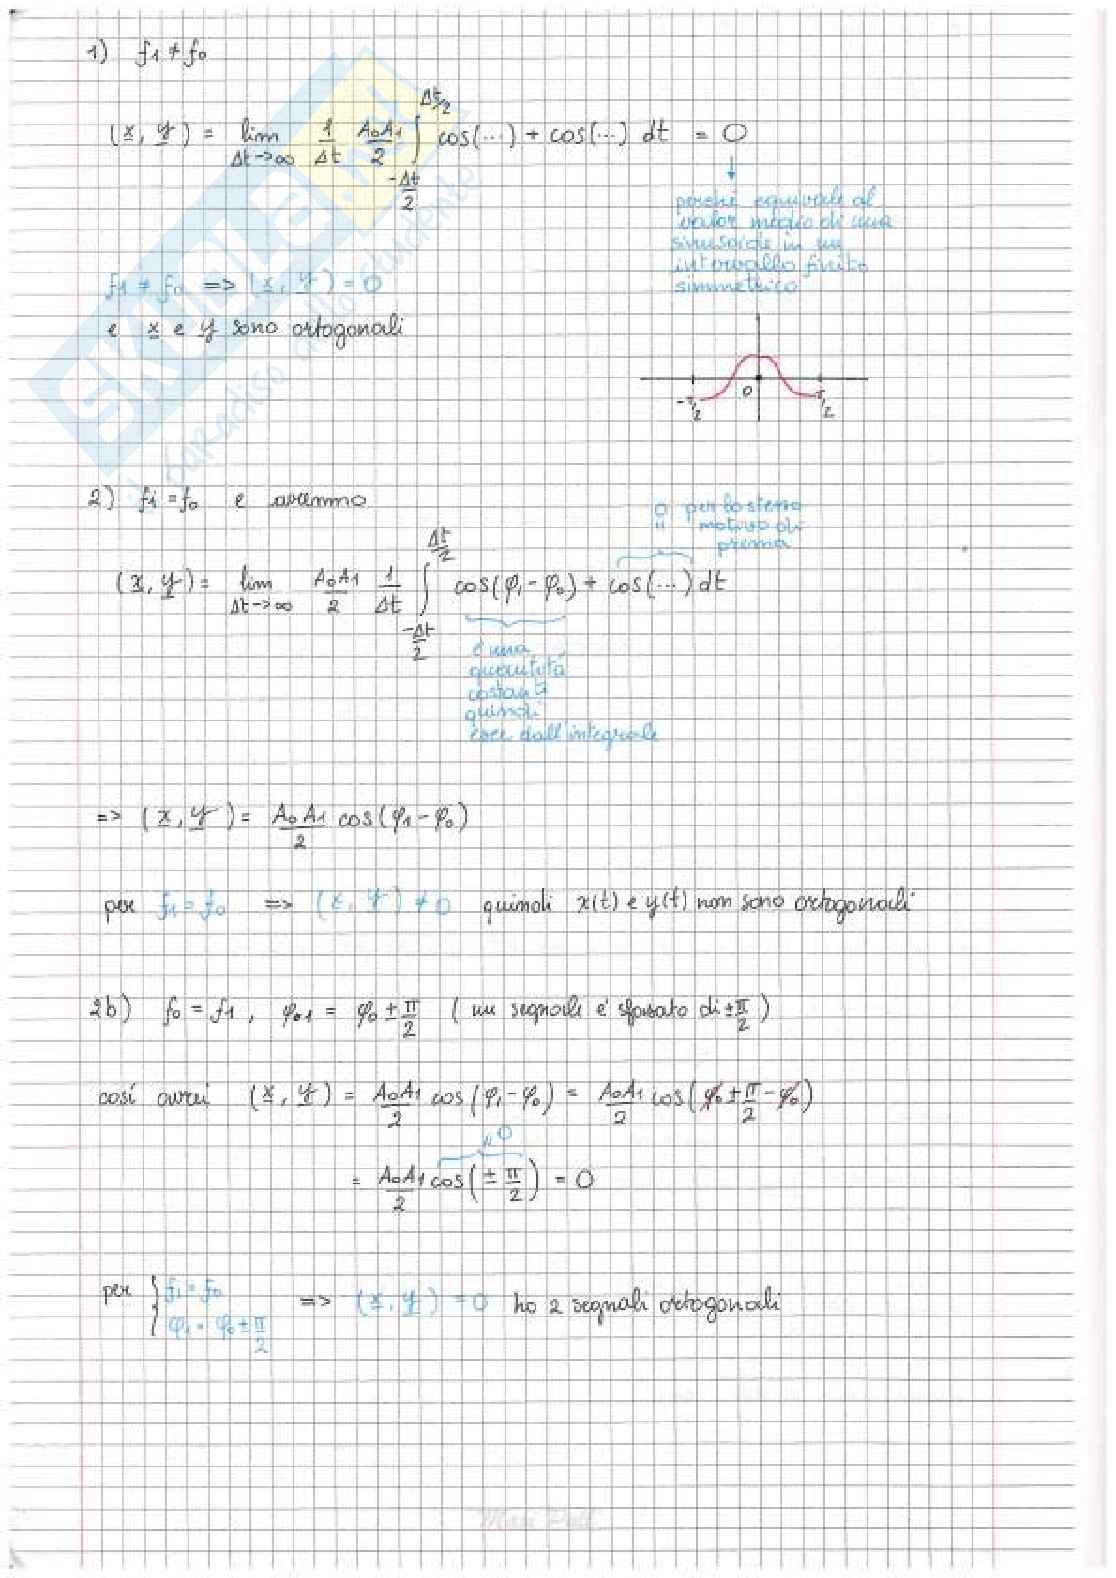 1) f1 ≠ f0
(x, y) = lim Δt->∞ 1/Δt A0A1/2 ∫ -Δt/2 Δt/2 cos(...) + cos(...) dt = 0
perché equivale al
valor medio di una
sinusoide in un
intervallo finito
simmetrico
f1 ≠ f0 => (x, y) = 0
e x e y sono ortogonali
-π/2 0 π/2
2) f1 = f0 e avremmo
0 per lo stesso
" motivo di
prima
(x, y) = lim Δt->∞ A0A1/2 1/Δt ∫ -Δt/2 Δt/2 cos(φ1 - φ0) + cos(...) dt
è una
quantità
costante
quindi
esce dall'integrale
=> (x, y) = A0A1/2 cos(φ1 - φ0)
per f1 = f0 => (x, y) ≠ 0 quindi x(t) e y(t) non sono ortogonali
2b) f0 = f1, φ1 = φ0 ± π/2 (un segnale è sfasato di ± π/2)
così avrei (x, y) = A0A1/2 cos(φ1 - φ0) = A0A1/2 cos(φ0 ± π/2 - φ0)
" 0
= A0A1/2 cos(± π/2) = 0
per { f1 = f0
φ1 = φ0 ± π/2
=> (x, y) = 0 ho 2 segnali ortogonali
SKUOLA.NET
il paradiso dello studente